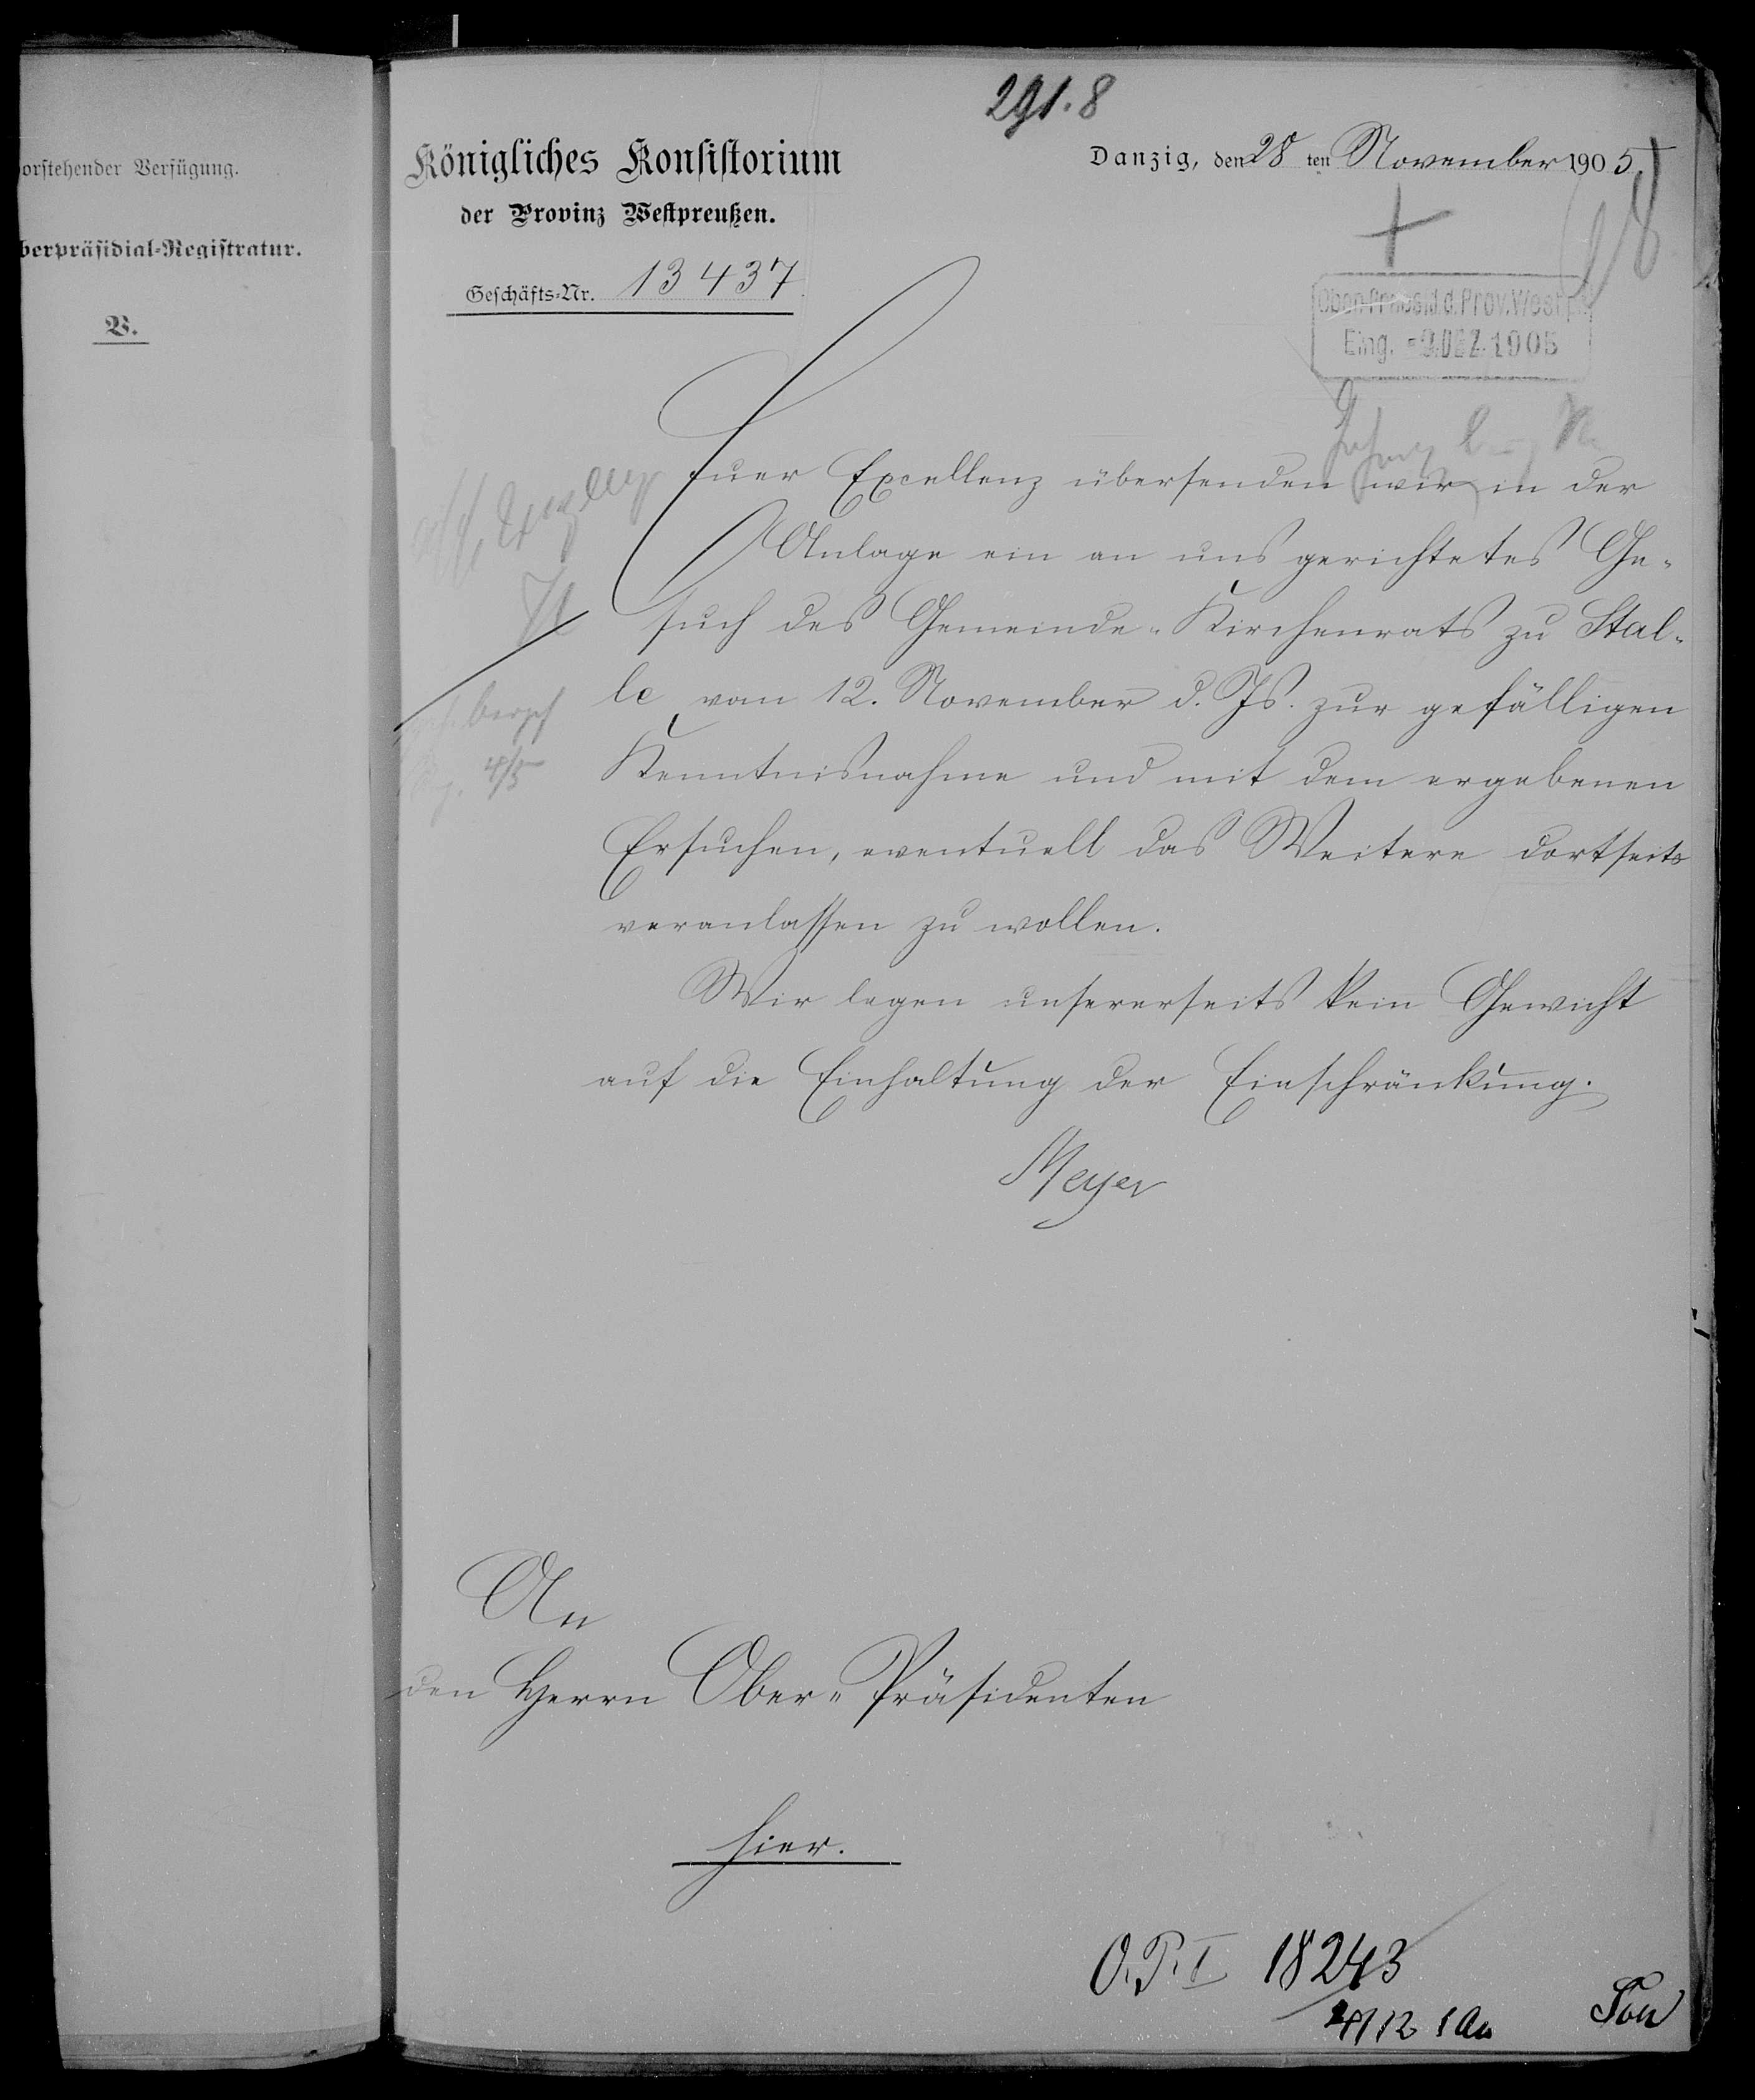 orstehender Verfügung.
berpräsidial-Registratur.
V.
291.8
Königliches Konsistorium
der Provinz Westpreußen.
Geschäfts-Nr. 13437
Danzig, den 28 ten November 1905.
Ober-Präsid. d. Prov. Westpr.
Eing. - DEZ. 1905
Euer Excellenz übersenden wir in der
Anlage ein an uns gerichtetes Ge-
such des Gemeinde-Kirchenrats zu Stal-
le vom 12. November d. Js. zur gefälligen
Kenntnisnahme und mit dem ergebenen
Ersuchen, eventuell das Weitere dortseits
veranlassen zu wollen.
Wir legen unsererseits kein Gewicht
auf die Einhaltung der Einschränkung.
Meyer
An
den Herrn Ober-Präsidenten
hier.
O. P. I 18243
4/12 1 An